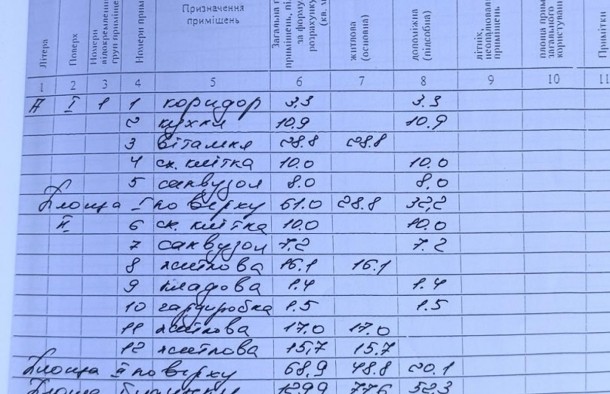 Літера Поверх Номери відокремлених груп приміщень Номери приміщень Призначення приміщень Загальна площа приміщень, за формулою розрахунку (кв. м) житлова (основна) допоміжна (підсобна) літніх, неопалюваних приміщень площа приміщень загального користування Примітки
1 2 3 4 5 6 7 8 9 10 11
А І 1 1 коридор 3.3 3.3
2 кухня 10.9 10.9
3 вітальня 28.8 28.8
4 сх. клітка 10.0 10.0
5 санвузол 8.0 8.0
Площа І поверху 61.0 28.8 32,2
ІІ 6 сх. клітка 10.0 10.0
7 санвузол 7.2 7.2
8 житлова 16.1 16.1
9 кладова 1.4 1.4
10 гардиробка 1.5 1.5
11 житлова 17.0 17.0
12 житлова 15,7 15.7
Площа ІІ поверху 68,9 48.8 20.1
Площа будинку 129.9 77.6 52.3